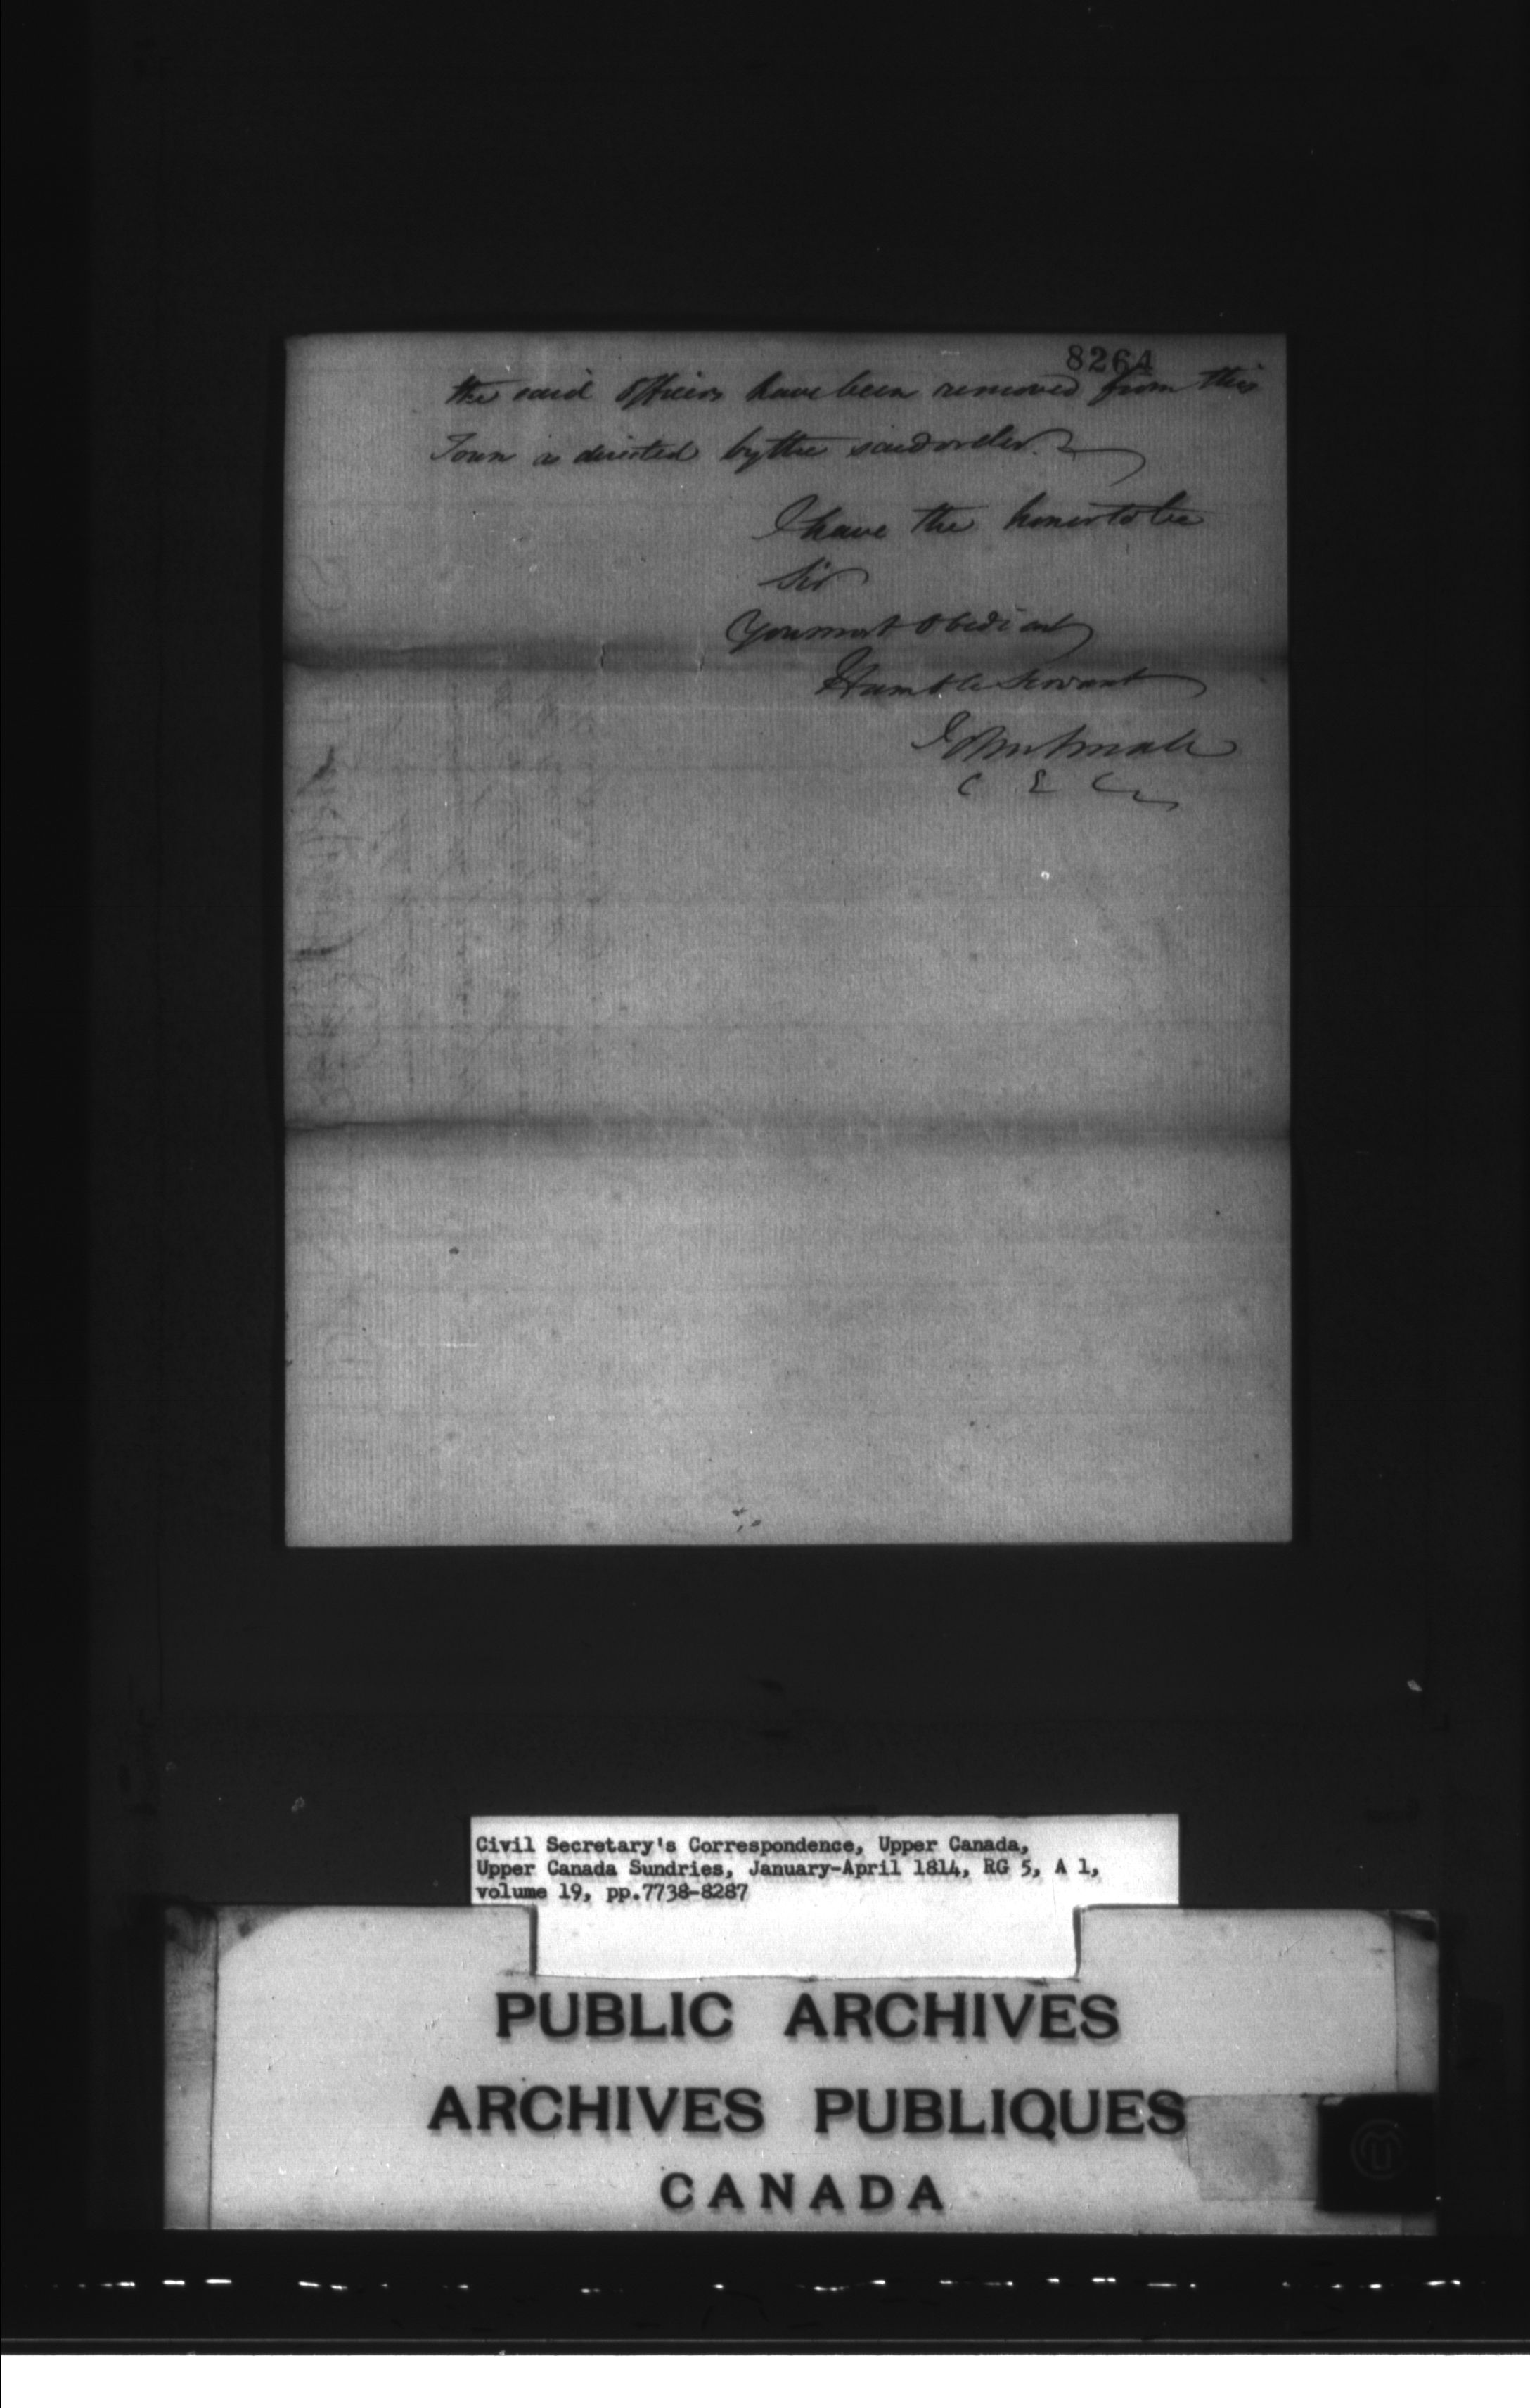 8264
the said Officers have been removed from this
Town as directed by the said order.
I have the honor to be
Sir
Your most Obedient
Humble Servant
John Small
C E C
Civil Secretary's Correspondence, Upper Canada,
Upper Canada Sundries, January-April 1814, RG 5, A 1,
volume 19, pp.7738-8287
PUBLIC ARCHIVES
ARCHIVES PUBLIQUES
CANADA